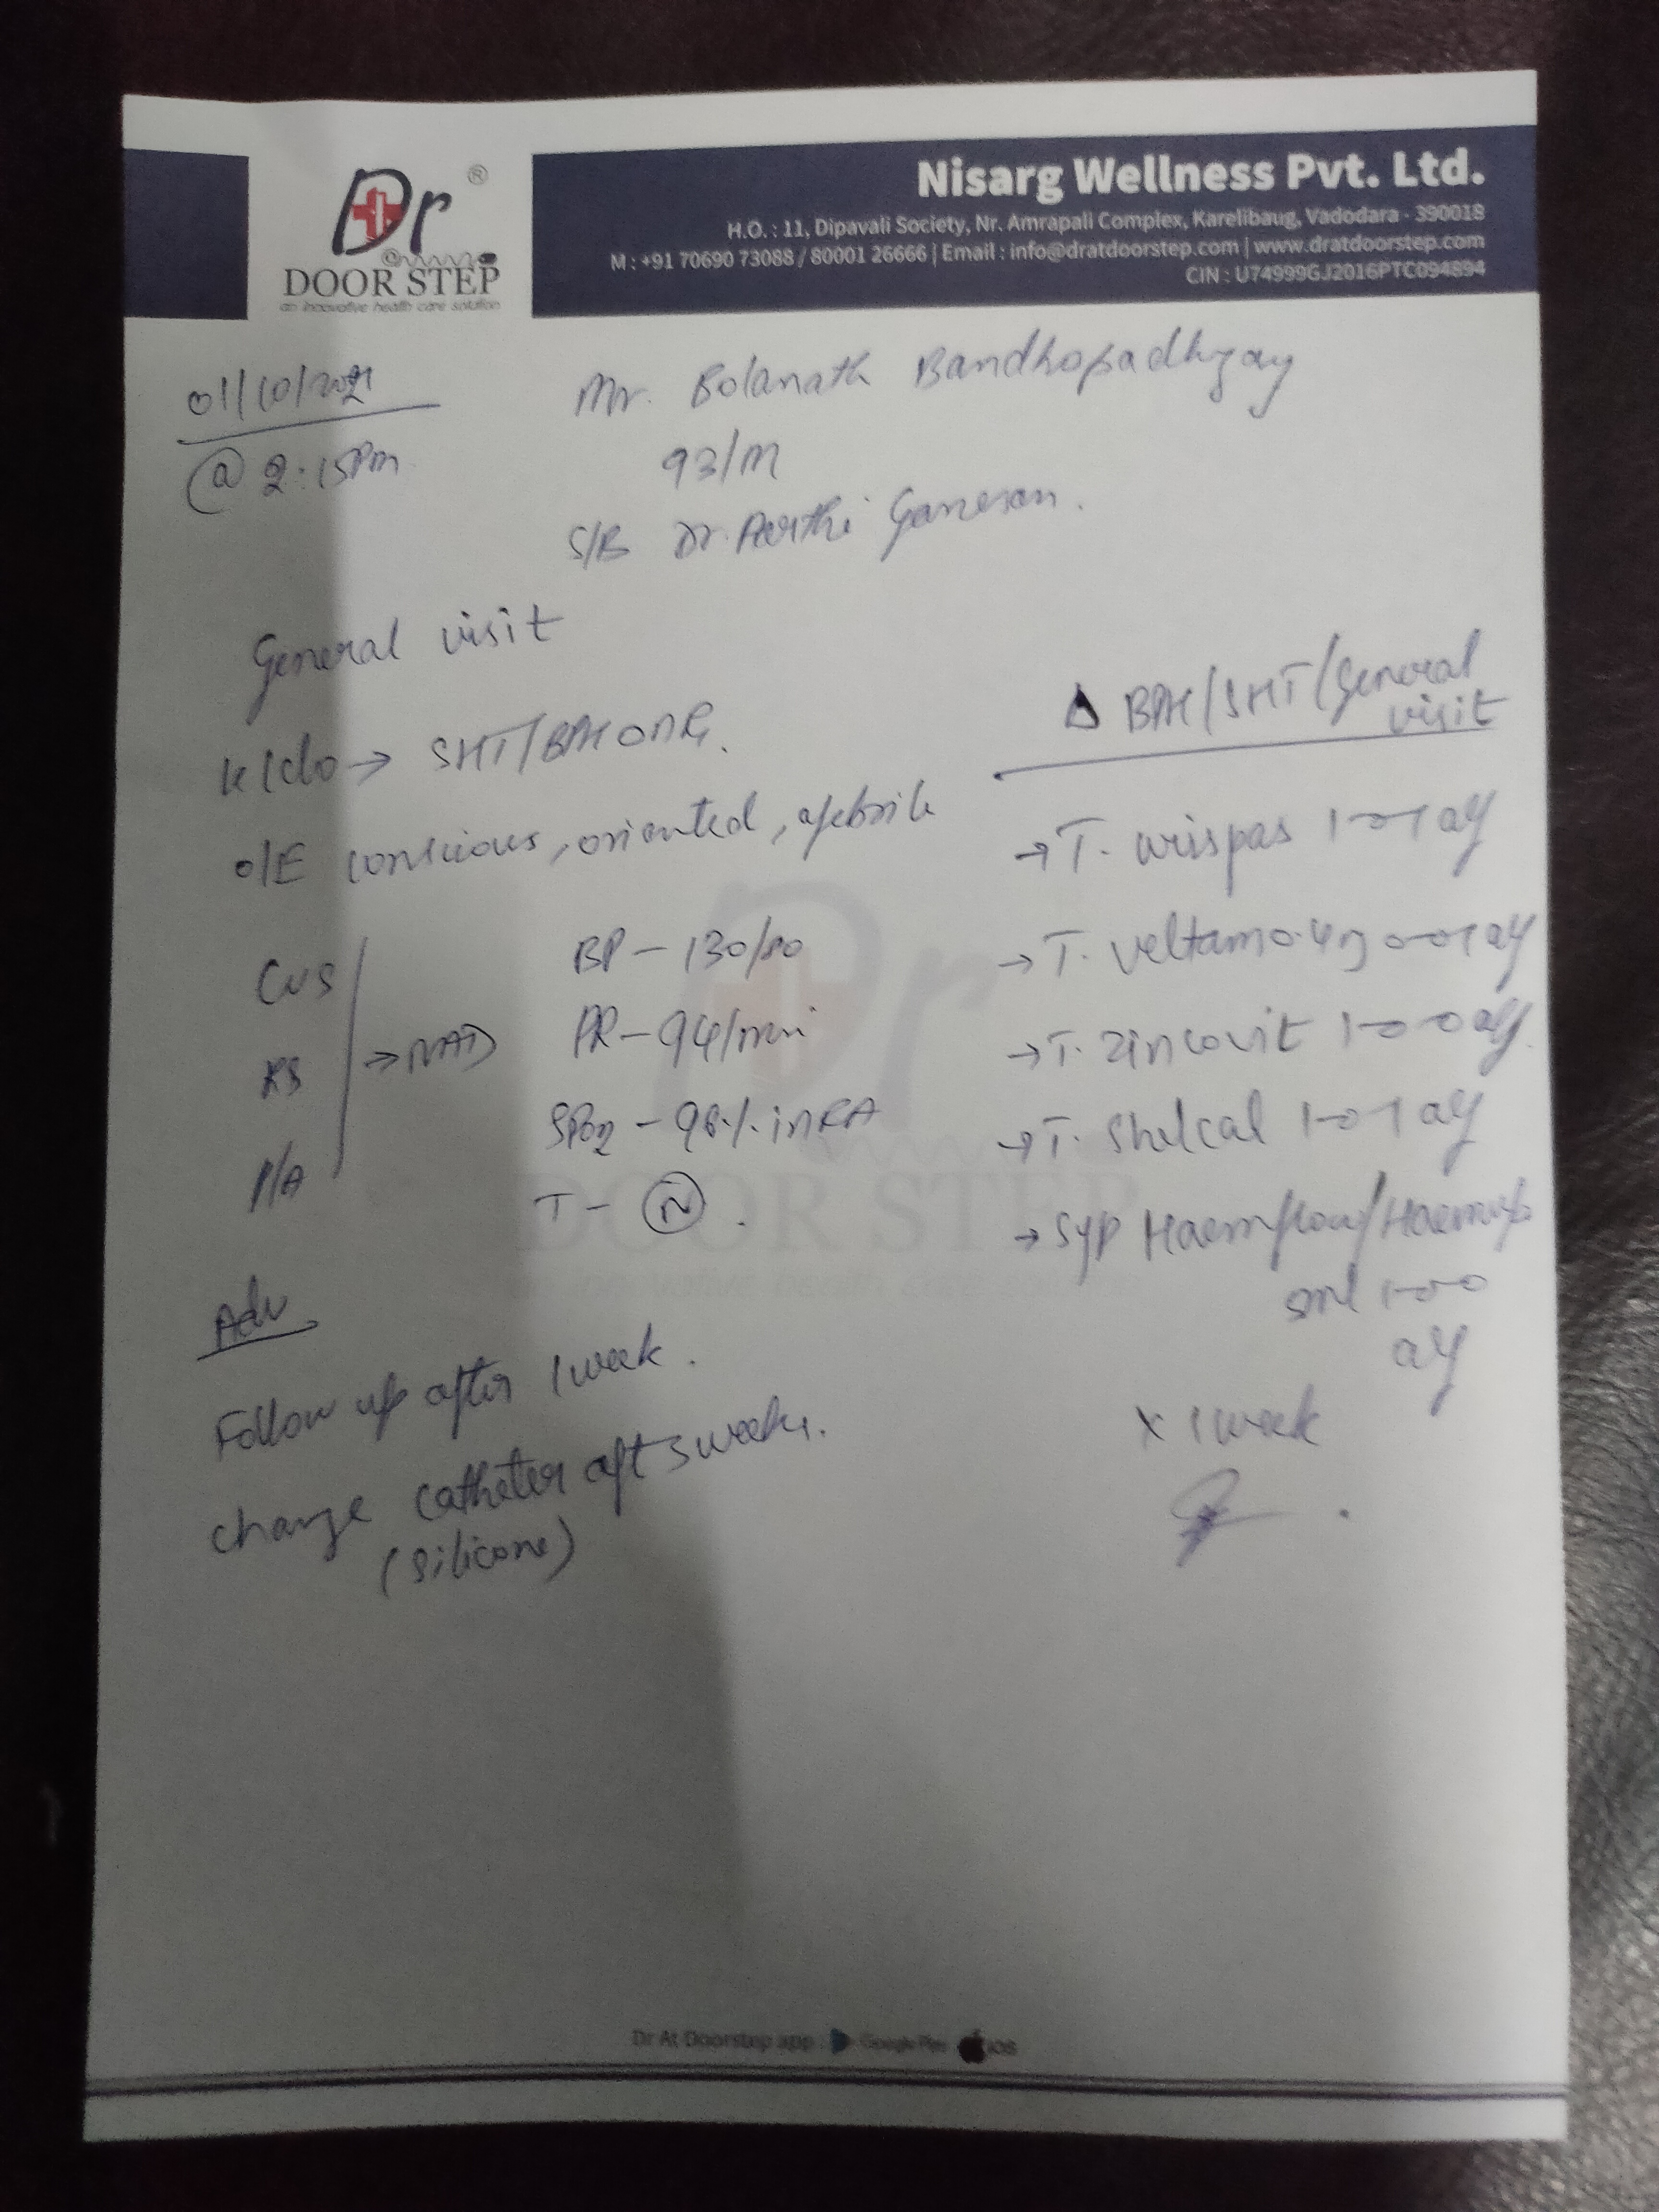 Dr ®
@
DOOR STEP
an innovative health care solution
Nisarg Wellness Pvt. Ltd.
H.O. : 11, Dipavali Society, Nr. Amrapali Complex, Karelibaug, Vadodara - 390018
M : +91 70690 73088 / 80001 26666 | Email : info@dratdoorstep.com | www.dratdoorstep.com
CIN : U74999GJ2016PTC094894
01/10/2021
@ 2:15pm
Mr. Bolanath Bandhopadhyay
93/M
S/B Dr. Aarthi Ganesan.
General visit
K/c/o → SHT/BPH on R.
O/E conscious, oriented, afebrile
CVS
RS
P/A
→ NAD
BP - 130/80
PR - 94/min
SPO2 - 98% in RA
T - N.
Adv
Follow up after 1 week.
change catheter aft 3 weeks.
(silicone)
Δ BPH/SHT/General
visit
→ T. urispas 1-0-1 af
→ T. veltam 0.4mg 0-0-1 af
→ T. zincovit 1-0-0 af.
→ T. Shelcal 1-0-1 af
→ Syp Haemflow/Haemup
5ml 1-0-0
af
x 1 week
Dr
DOOR STEP
an innovative health care solution
Dr At Doorstep app : Google Play iOS